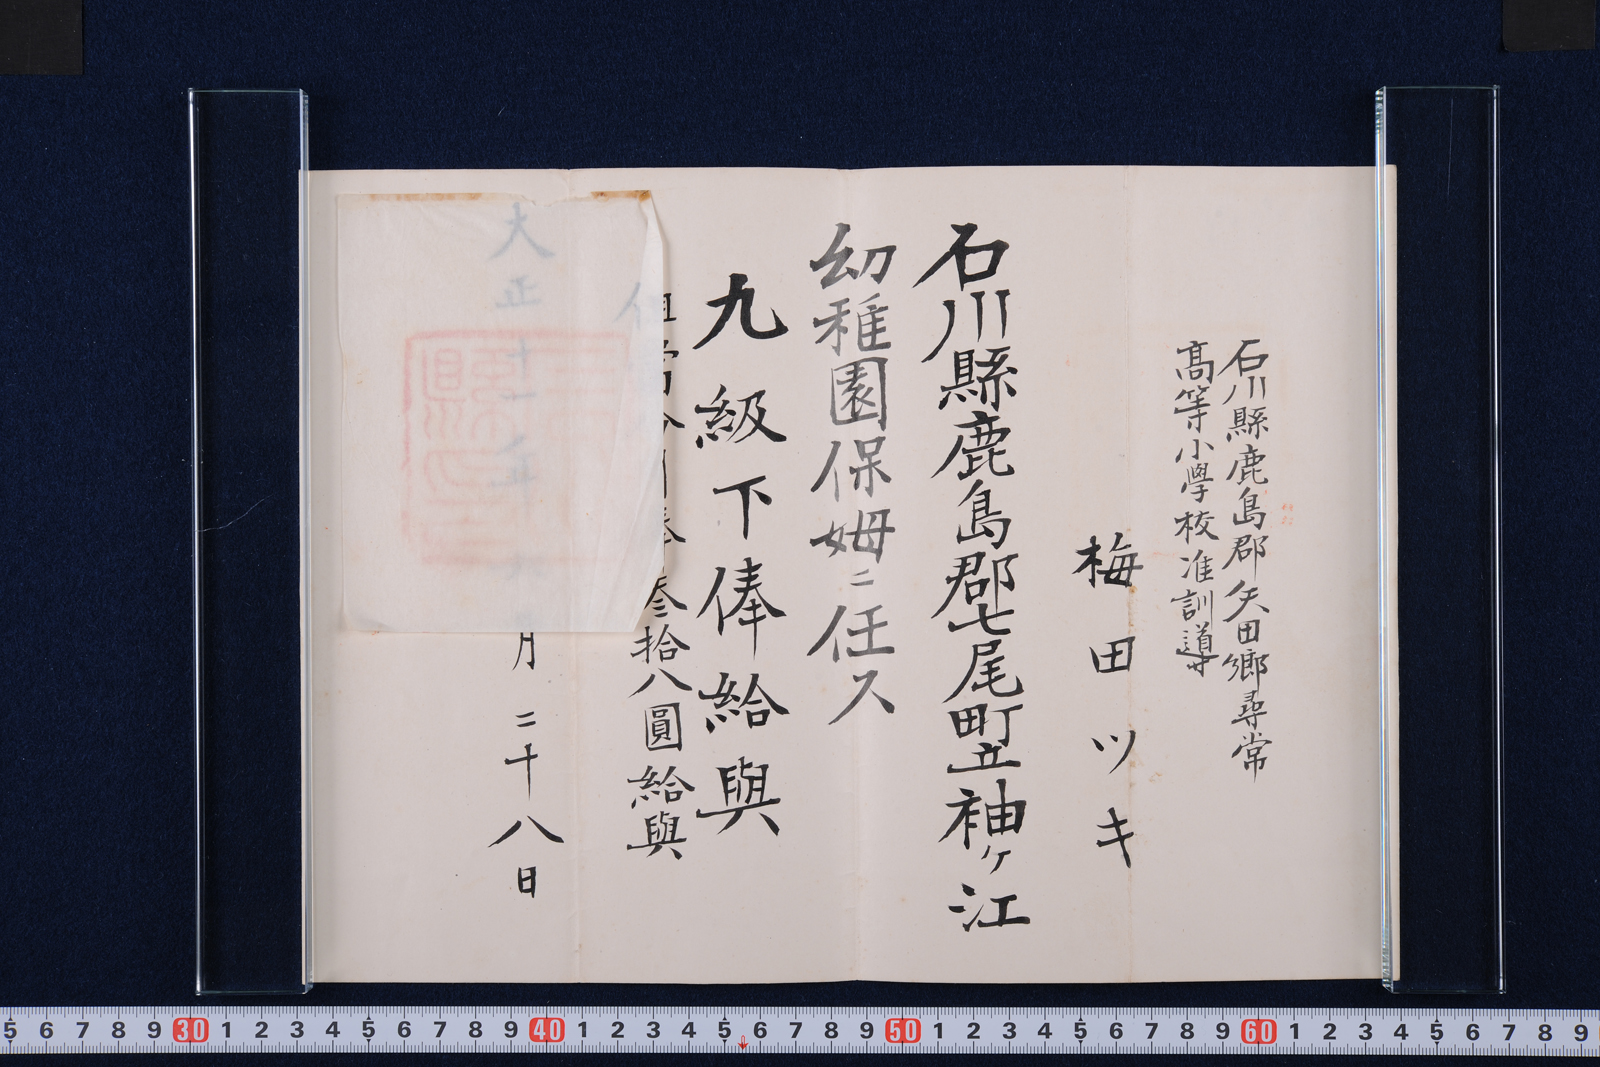 石川縣鹿島郡矢田郷尋常
高等小學校准訓導
梅田ツキ
石川縣鹿島郡七尾町立袖ヶ江
幼稚園保姆ニ任ス
九級下俸給與
但當分月俸參拾八圓給與
大正十一年 月二十八日
5 6 7 8 9 30 1 2 3 4 5 6 7 8 9 40 1 2 3 4 5 6 7 8 9 50 1 2 3 4 5 6 7 8 9 60 1 2 3 4 5 6 7 8 9